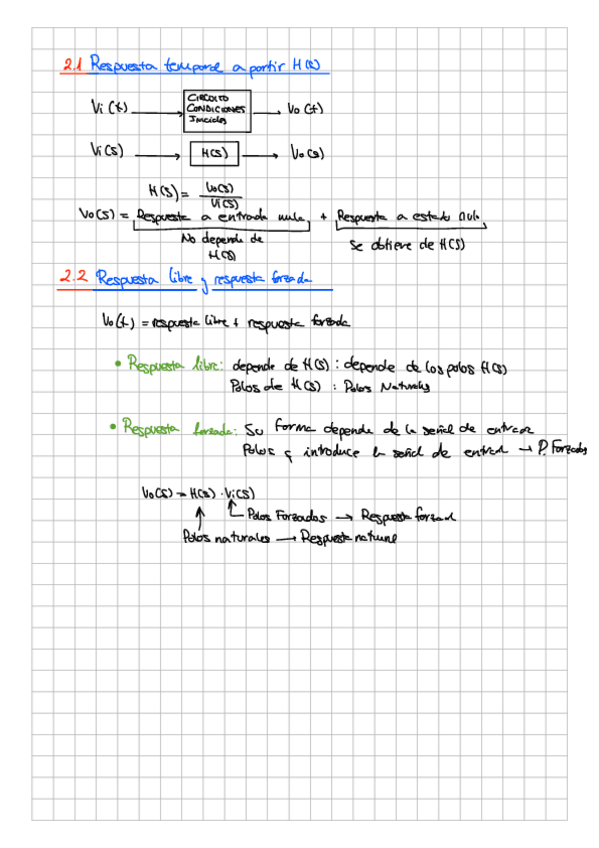 2.1 Respuesta temporal a partir H(s)
Vi(t) → CIRCUITO CONDICIONES Iniciales → Vo(t)
Vi(s) → H(s) → Vo(s)
H(s) = Vo(s) / Vi(s)
Vo(s) = Respuesta a entrada nula + Respuesta a estado nulo
No depende de H(s)
Se obtiene de H(s)
2.2 Respuesta libre y respuesta forzada
Vo(t) = respuesta libre + respuesta forzada
• Respuesta libre: depende de H(s) : depende de los polos H(s)
Polos de H(s) : Polos Naturales
• Respuesta forzada: Su forma depende de la señal de entrada
Polos q introduce la señal de entrad → P. Forzados
Vo(s) = H(s) · Vi(s)
Polos Forzados → Respuesta forzad
Polos naturales → Respuesta natural